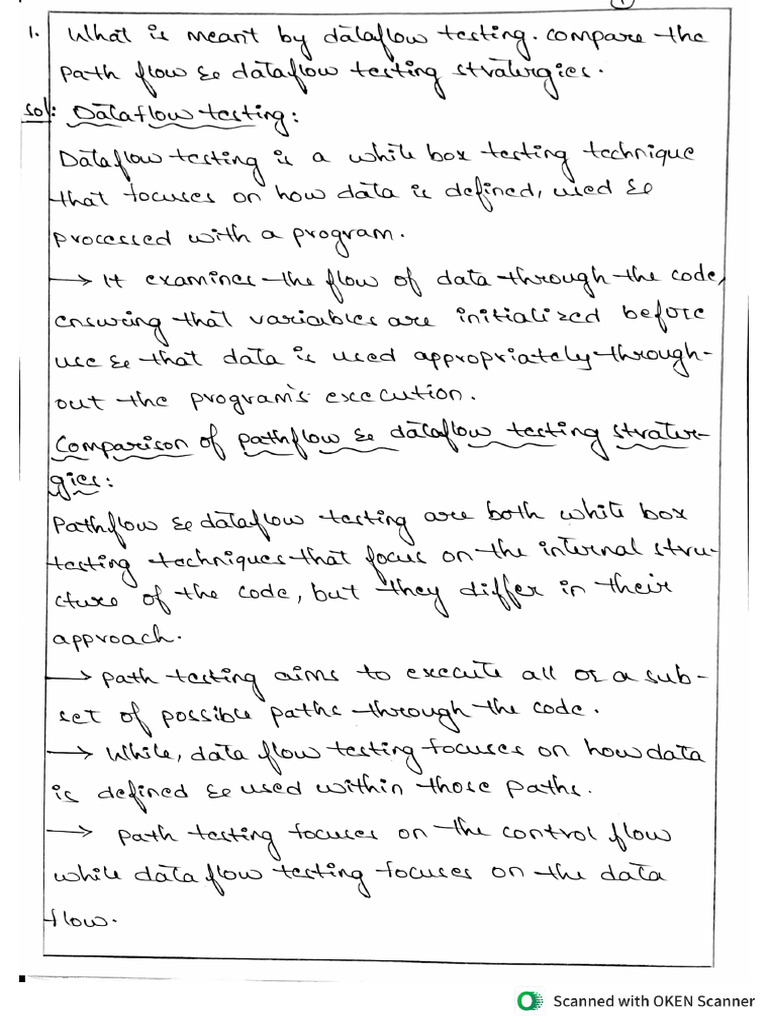 1
1. What is meant by dataflow testing. compare the
path flow & dataflow testing stratergies.
Sol: Dataflow testing:
Dataflow testing is a white box testing technique
that focuses on how data is defined, used &
processed with a program.
→ It examines the flow of data through the code,
ensuring that variables are initialized before
use & that data is used appropriately through-
out the program's execution.
Comparison of pathflow & dataflow testing strater-
gies:
Pathflow & dataflow testing are both white box
testing techniques that focus on the internal stru-
cture of the code, but they differ in their
approach.
→ path testing aims to execute all or a sub-
set of possible paths through the code.
→ While, data flow testing focuses on how data
is defined & used within those paths.
→ path testing focuses on the control flow
while data flow testing focuses on the data
flow.
Scanned with OKEN Scanner